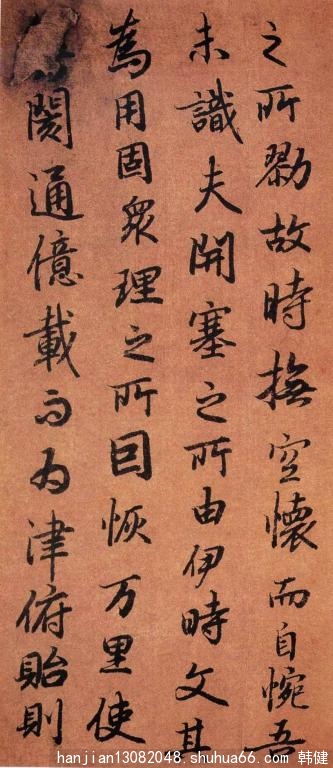 之所勠故時撫空懷而自惋吾
未識夫開塞之所由伊時文其
為用固衆理之所因恢万里使
閡通億載而为津俯貽則
hanjian13082048.shuhua66.com 韩健